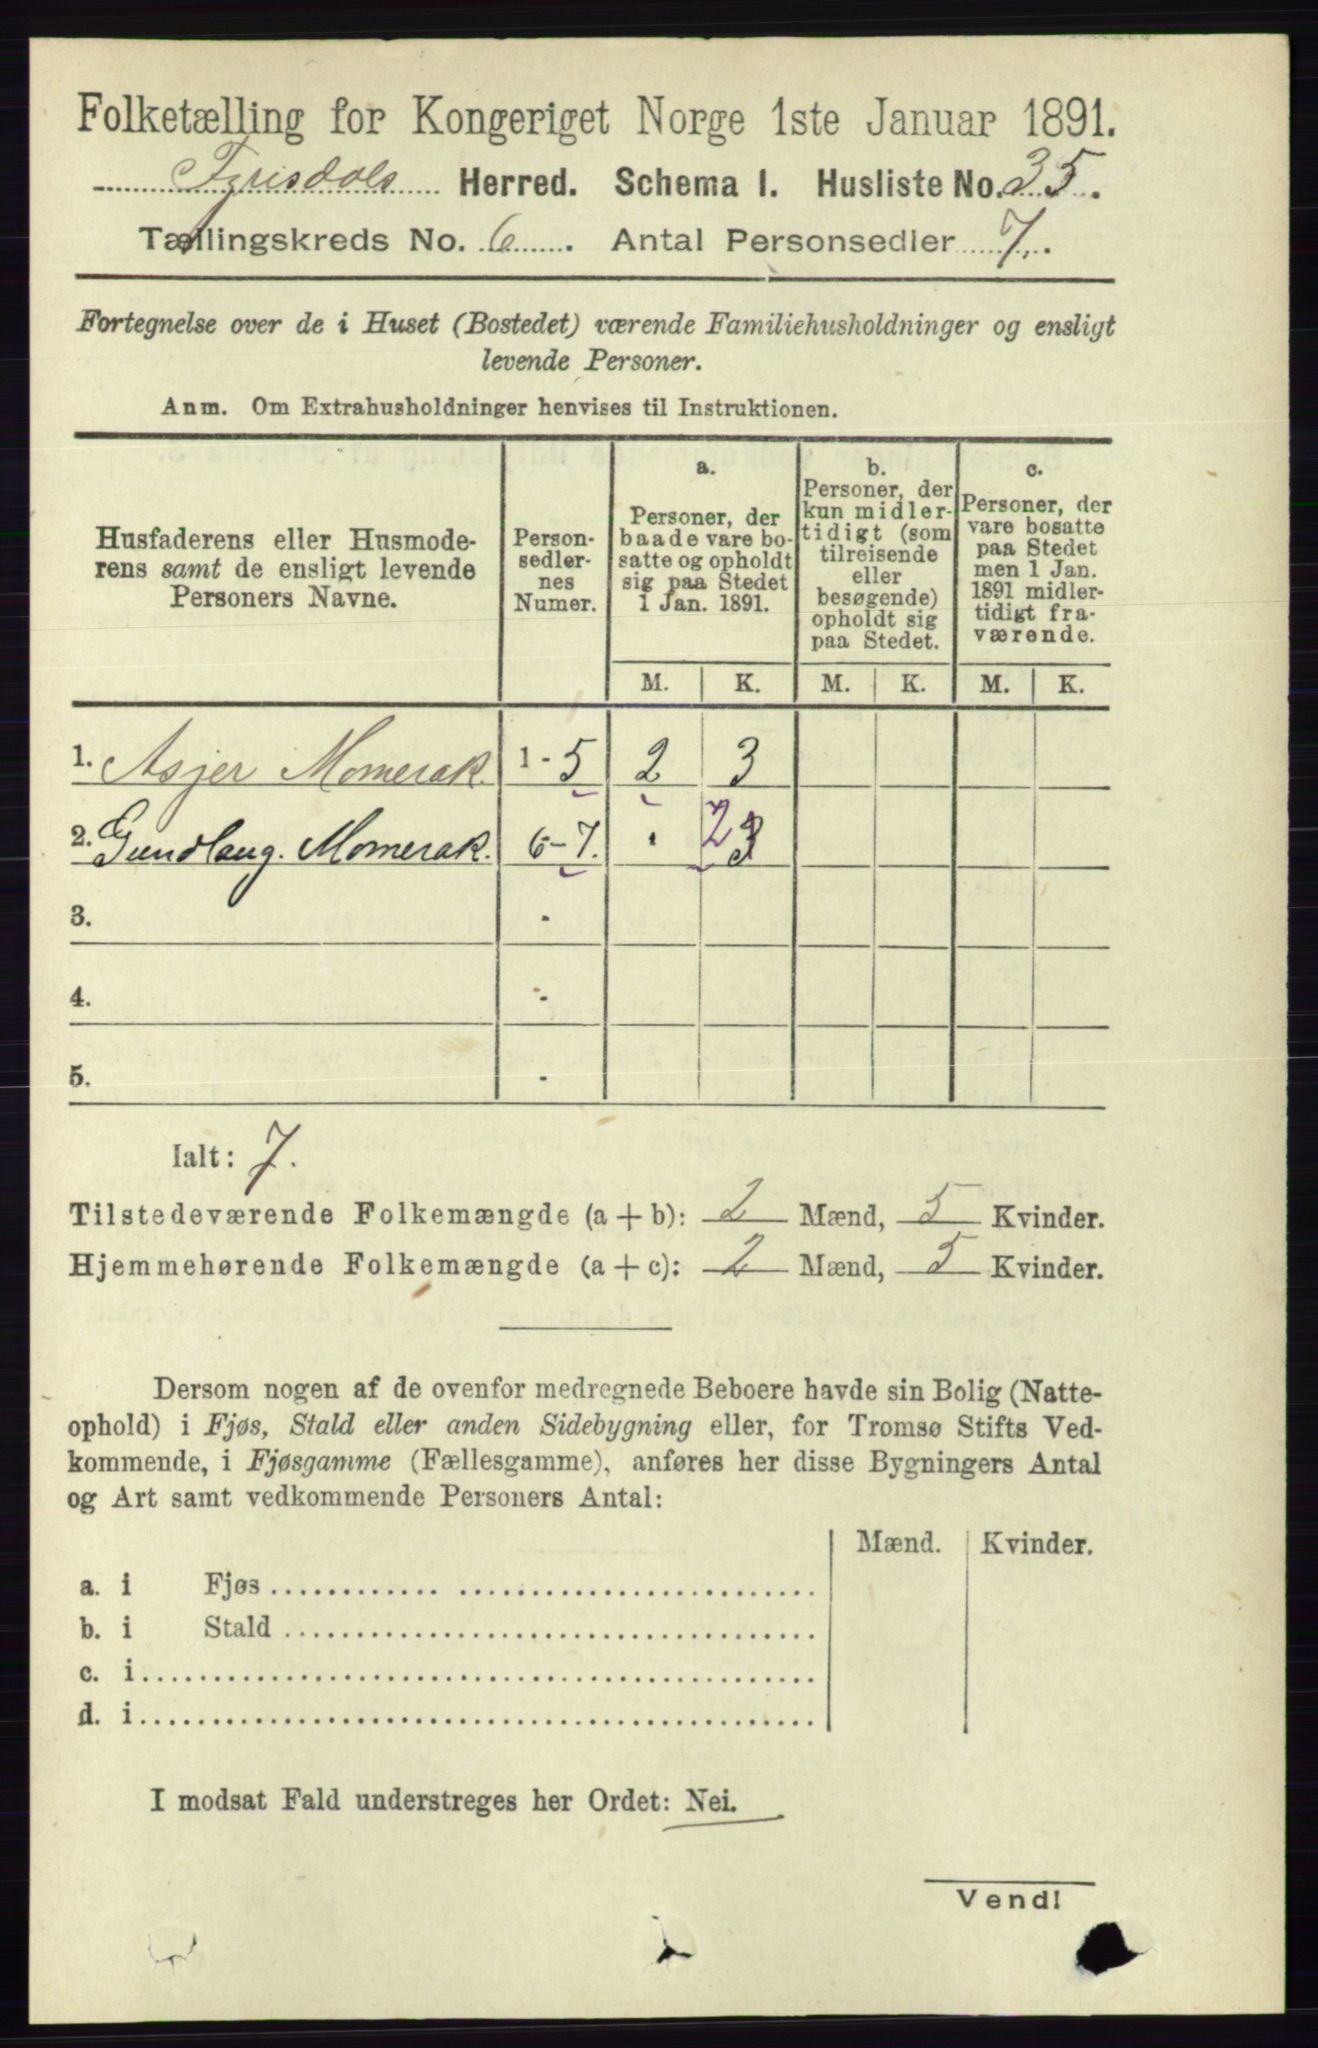 Folketælling for Kongeriget Norge 1ste Januar 1891.
Fyrisdals Herred. Schema I. Husliste No. 35.
Tællingskreds No. 6. Antal Personsedler 7.
Fortegnelse over de i Huset (Bostedet) værende Familiehusholdninger og ensligt
levende Personer.
Anm. Om Extrahusholdninger henvises til Instruktionen.
Husfaderens eller Husmode-
rens samt de ensligt levende
Personers Navne.
Person-
sedler-
nes
Numer.
a.
Personer, der
baade vare bo-
satte og opholdt
sig paa Stedet
1 Jan. 1891.
b.
Personer, der
kun midler-
tidigt (som
tilreisende
eller
besøgende)
opholdt sig
paa Stedet.
c.
Personer, der
vare bosatte
paa Stedet
men 1 Jan.
1891 midler-
tidigt fra-
værende.
M. K. M. K. M. K.
1. Asjer Momerak. 1 - 5 2 3
2. Gundlaug. Momerak. 6-7. · 2 3
3. -
4. -
5. -
Ialt: 7.
Tilstedeværende Folkemængde (a + b): 2 Mænd, 5 Kvinder.
Hjemmehørende Folkemængde (a + c): 2 Mænd, 5 Kvinder.
Dersom nogen af de ovenfor medregnede Beboere havde sin Bolig (Natte-
ophold) i Fjøs, Stald eller anden Sidebygning eller, for Tromsø Stifts Ved-
kommende, i Fjøsgamme (Fællesgamme), anføres her disse Bygningers Antal
og Art samt vedkommende Personers Antal:
Mænd. Kvinder.
a. i Fjøs
b. i Stald
c. i
d. i
I modsat Fald understreges her Ordet: Nei.
Vend!